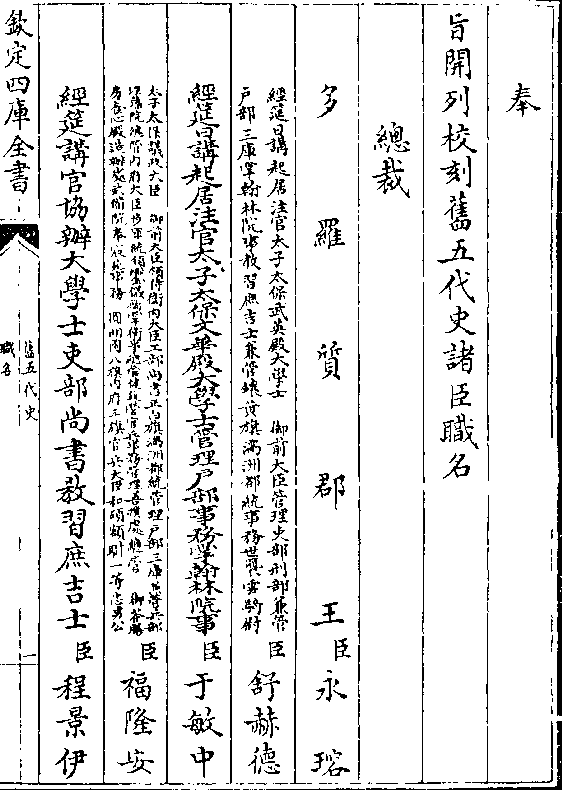 奉
旨開列校刻舊五代史諸臣職名
總裁
多羅質郡王臣永瑢
經筵日講起居注官太子太保武英殿大學士 御前大臣管理吏部刑部兼管
戶部三庫掌翰林院事教習庶吉士兼管鑲黃旗滿洲都統事務世襲雲騎尉 臣舒赫德
經筵日講起居注官太子太保文華殿大學士管理戶部事務掌翰林院事臣于敏中
太子太保議政大臣 御前大臣領侍衛內大臣工部尚書正白旗滿洲都統管理戶部三庫
臣福隆安
經筵講官協辦大學士吏部尚書教習庶吉士臣程景伊
欽定四庫全書
舊五代史
職名
一